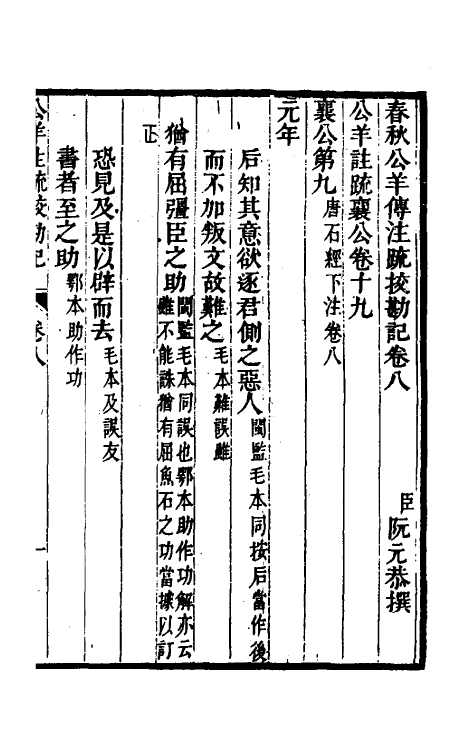 春秋公羊傳注疏挍勘記卷八
臣阮元恭撰
公羊註疏襄公卷十九
襄公第九唐石經下注卷八
元年
后知其意欲逐君側之惡人閩監毛本同按后當作後
而不加叛文故難之毛本難誤雖
猶有屈彊臣之助閩監毛本同誤也鄂本助作功解亦云
雖不能誅猶有屈魚石之功當據以訂
正
恐見及是以辟而去毛本及誤友
書者至之助鄂本助作功
公羊註疏挍勘記
卷八
一